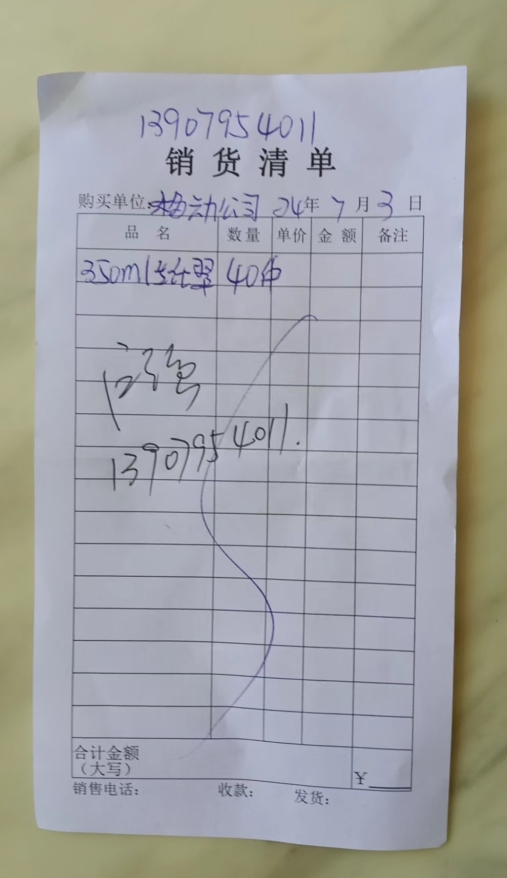 13907954011
销货清单
购买单位: 移动公司 24年 7月 3日
品名 数量 单价 金额 备注
350ml 40件
13907954011.
合计金额
(大写) ¥
销售电话: 收款: 发货: